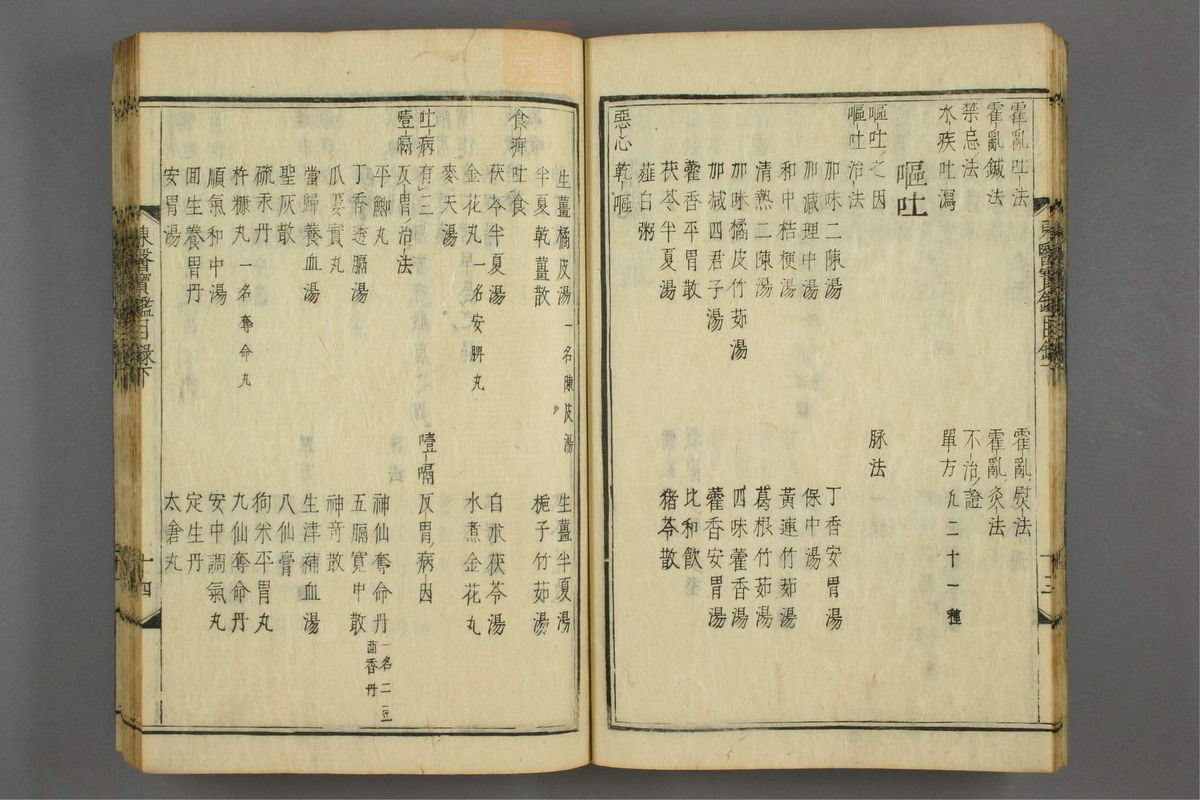 東醫寶鑑目錄下 十三
霍亂吐法 霍亂熨法
霍亂鍼法 霍亂灸法
禁忌法 不治證
水疾吐瀉 單方 九二十一種
嘔吐
嘔吐之因 脉法
嘔吐治法
加味二陳湯 丁香安胃湯
加減理中湯 保中湯
和中桔梗湯 黃連竹茹湯
清熱二陳湯 葛根竹茹湯
加味橘皮竹茹湯 四味藿香湯
加减四君子湯 藿香安胃湯
藿香平胃散 比和飲
茯苓半夏湯 猪苓散
薤白粥
惡心 乾嘔
生薑橘皮湯 一名陳皮湯 生薑半夏湯
半夏乾薑散 梔子竹茹湯
食痹吐食
茯苓半夏湯 白朮茯苓湯
金花丸 一名安脾丸 水煮金花丸
麥天湯
吐病有三 噎膈反胃病因
噎膈反胃治法
平鯽丸 神仙奪命丹 一名二豆茴香丹
丁香透膈湯 五膈寬中散
瓜蔞實丸 神奇散
當歸養血湯 生津補血湯
聖灰散 八仙膏
硫汞丹 狗米平胃丸
杵糠丸 一名奪命丸 九仙奪命丹
順氣和中湯 安中調氣丸
囬生養胃丹 定生丹
安胃湯 太倉丸
東醫寶鑑目錄下 十四